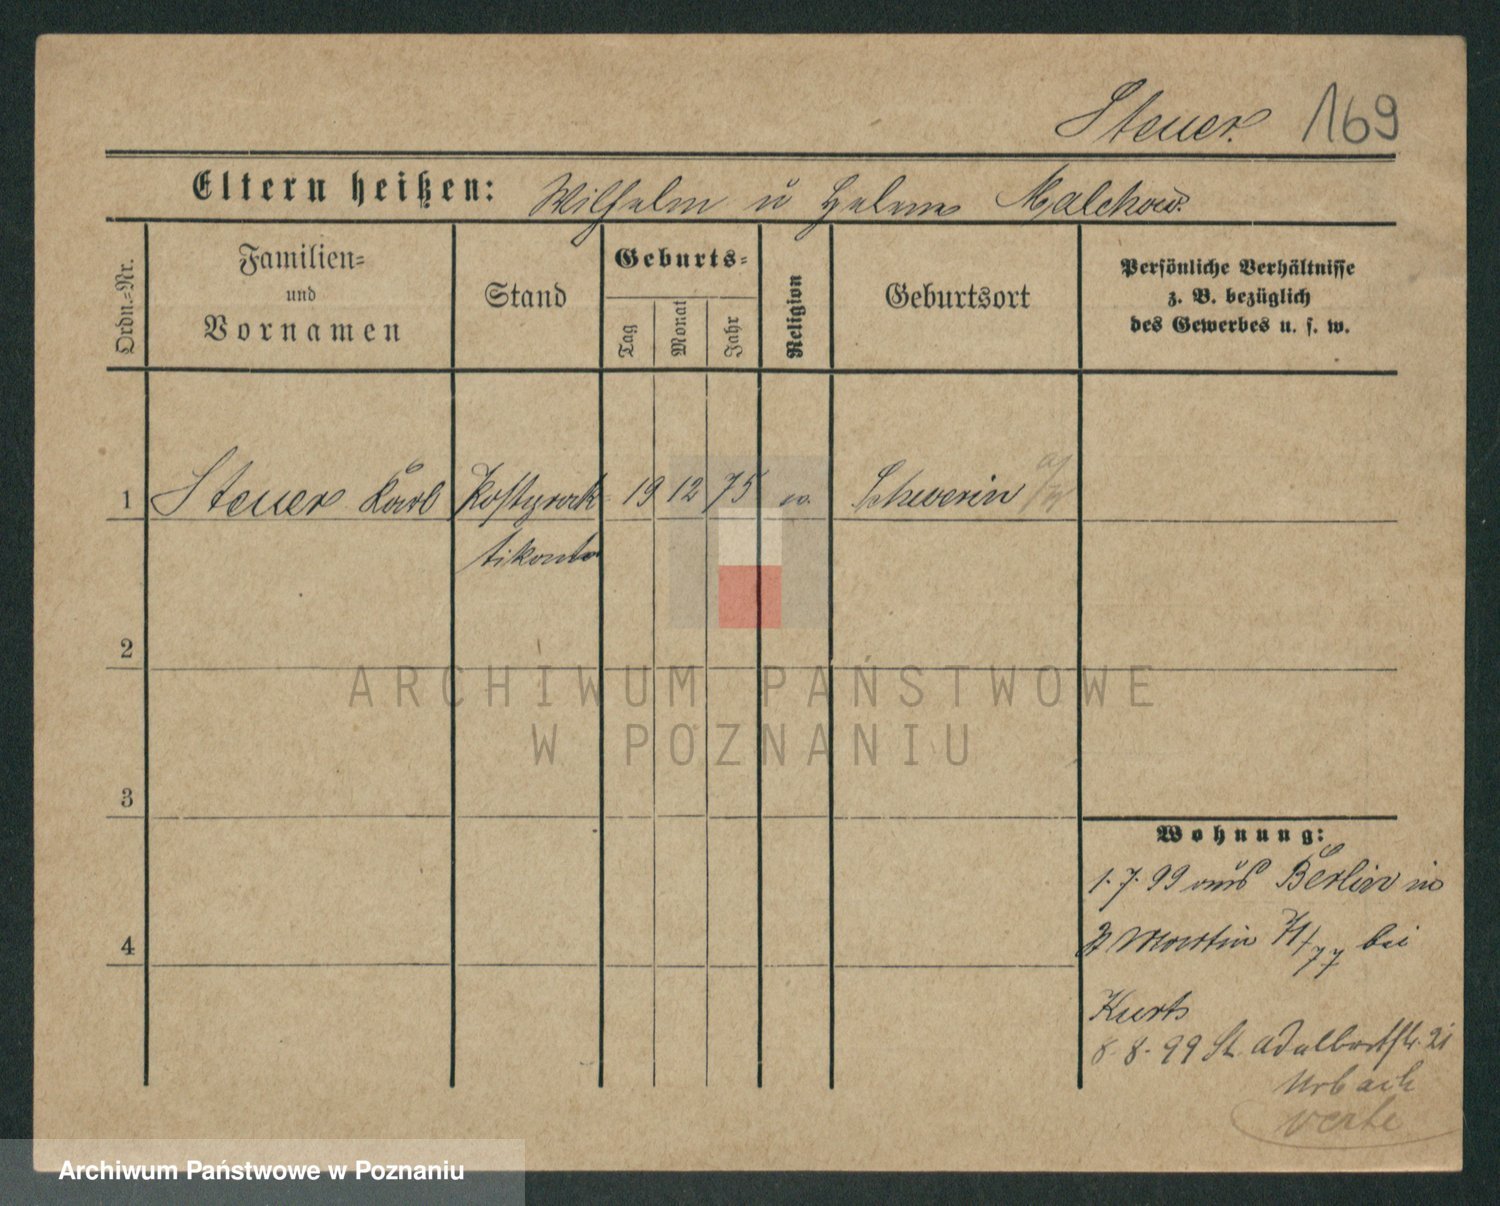 Steuer. 169
Eltern heißen: Wilhelm u Helene Malchow.
Ordn.=Nr.
Familien=
und
Vornamen
Stand
Geburts=
Tag
Monat
Jahr
Religion
Geburtsort
Persönliche Verhältnisse
z. B. bezüglich
des Gewerbes u. s. w.
1 Steuer Karl 19 12 75 ev. Schwerin a/W
2
ARCHIWUM PAŃSTWOWE
W POZNANIU
3
Wohnung:
1.7.99 aus Berlin in
Martin bei
4
8.8.99 St. Adalbertstr. 21
Urbach
verte
Archiwum Państwowe w Poznaniu